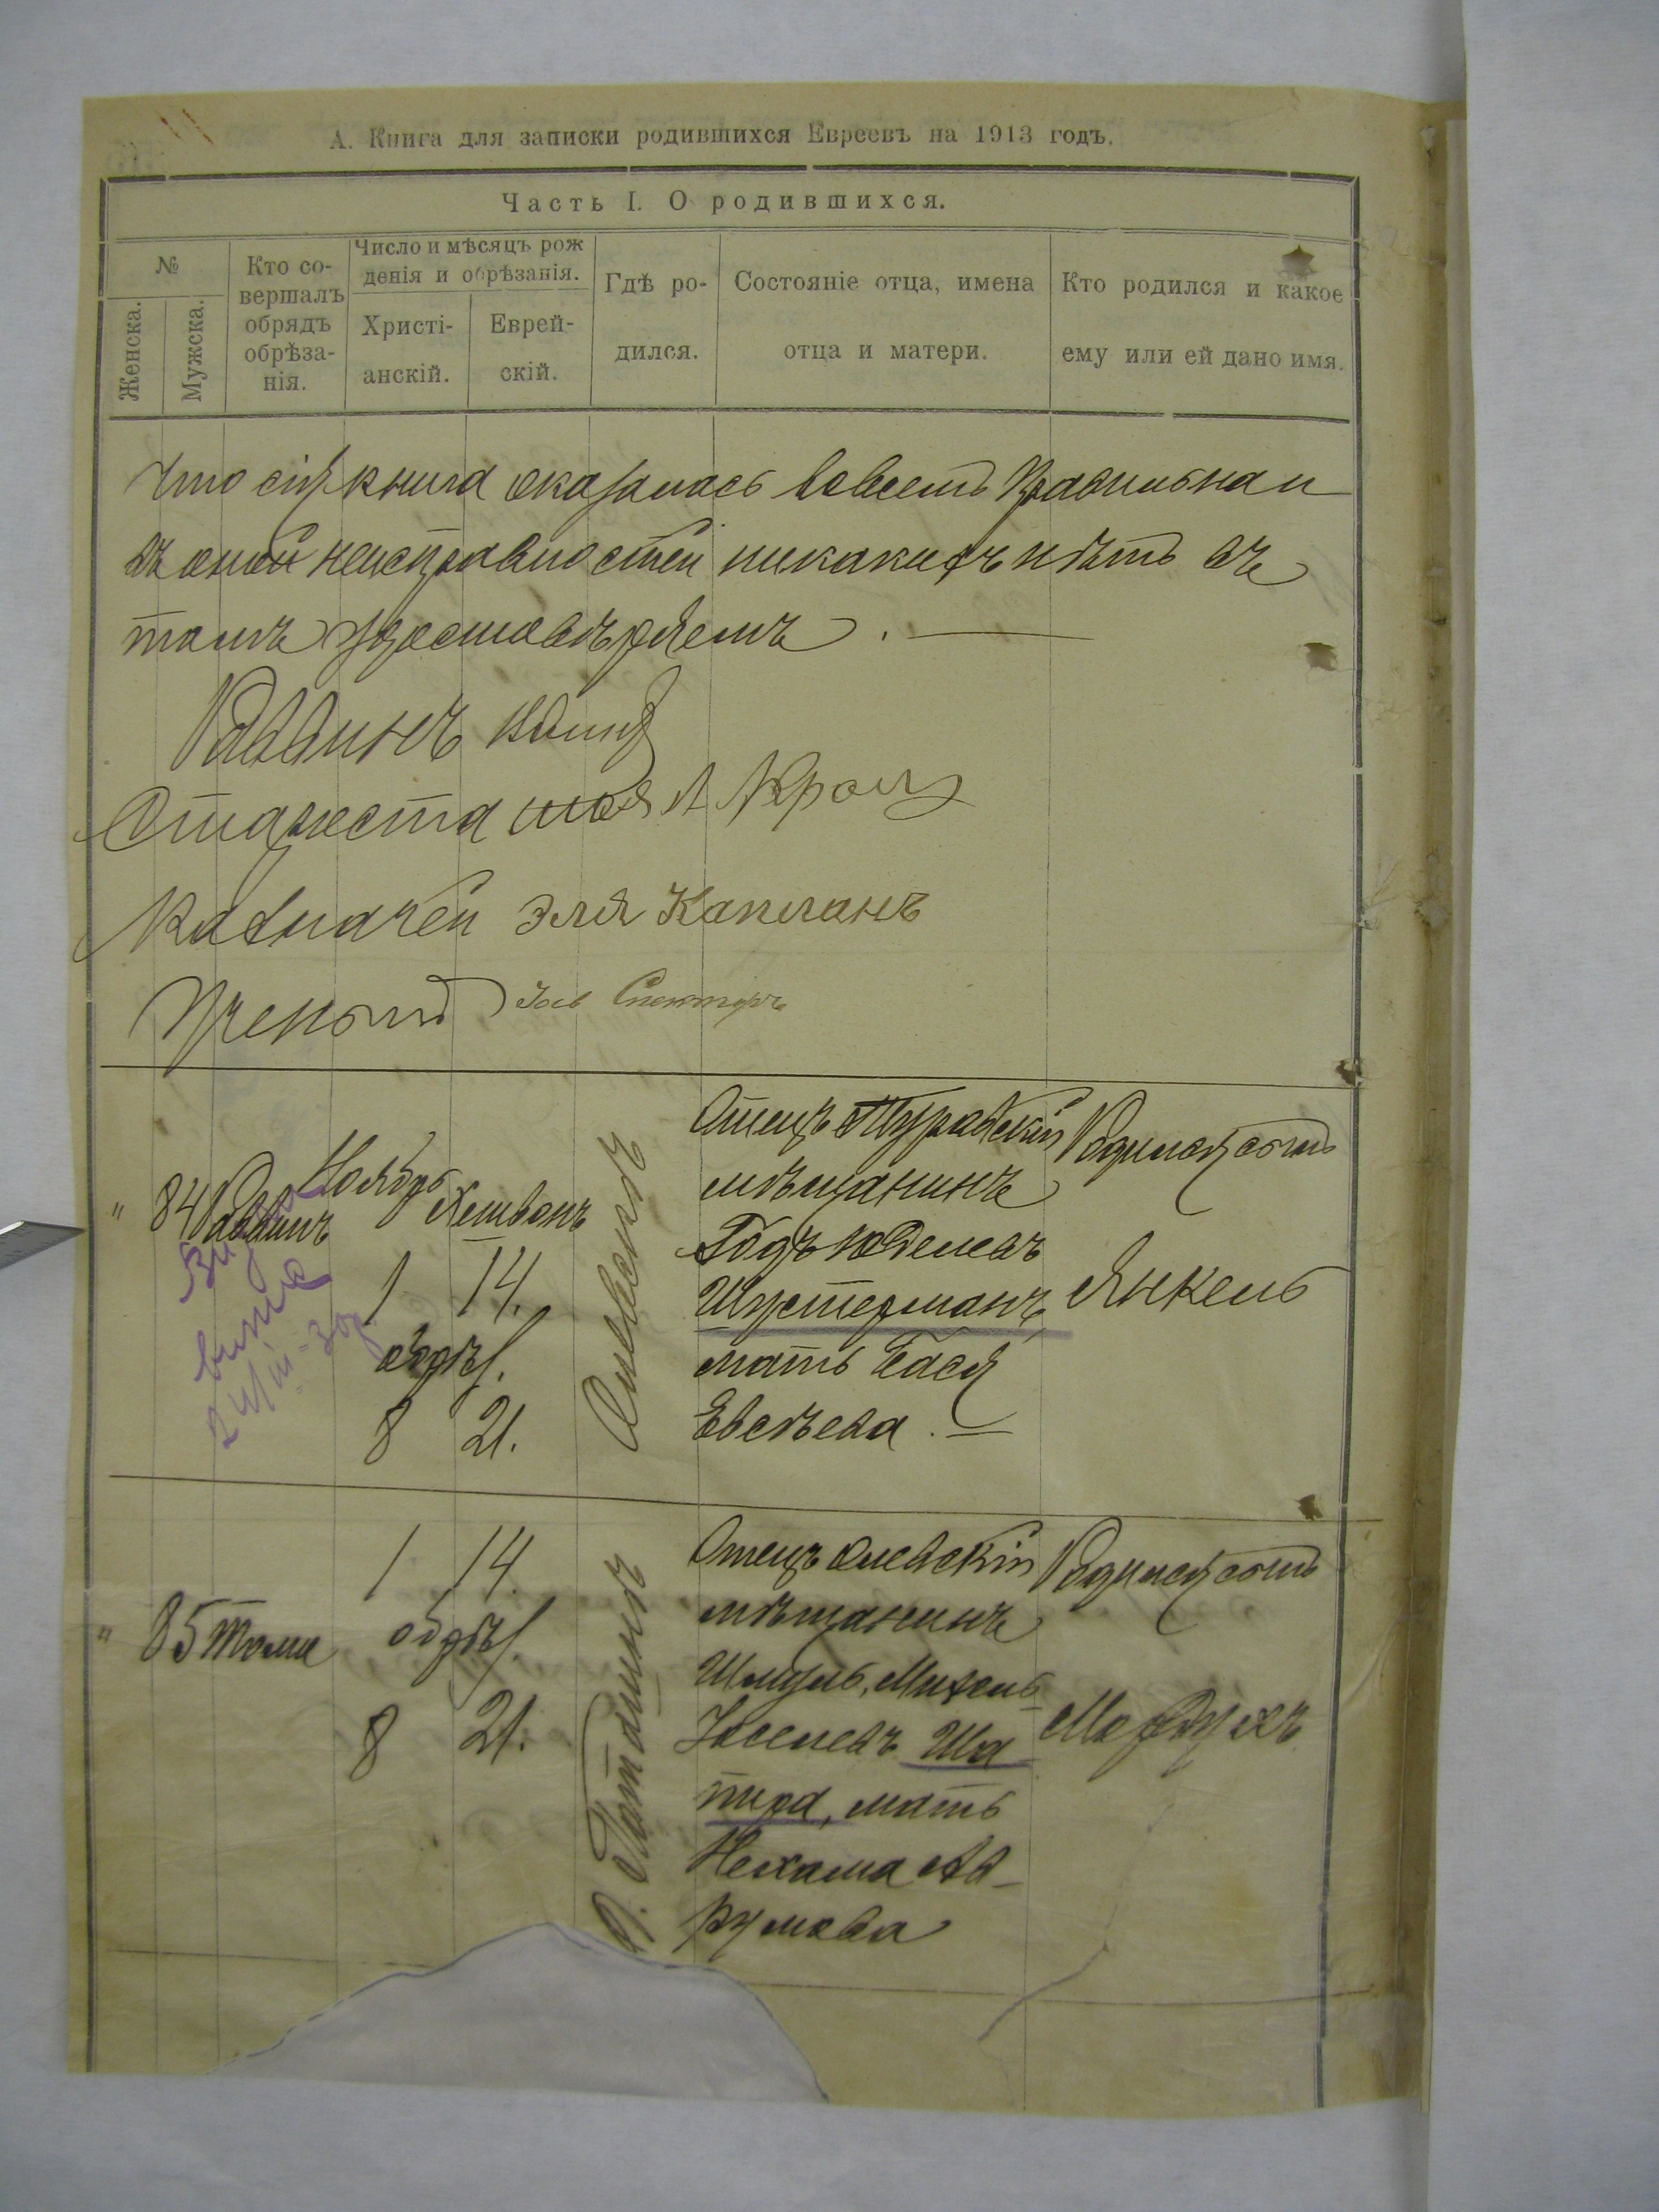 А. Книга для записки родившихся Евреевъ на 1913 годъ.
Часть I. О родившихся.
№
Женска.
Мужска.
Кто со-
вершалъ
обрядъ
обрѣза-
нія.
Число и мѣсяцъ рож
денія и обрѣзанія.
Христі-
анскій.
Еврей-
скій.
Гдѣ ро-
дился.
Состояніе отца, имена
отца и матери.
Кто родился и какое
ему или ей дано имя.
Что сія книга оказалась вовсемъ правильна и
въ оной неисправностей никакихъ нѣтъ въ
томъ удостовѣряемъ.
Раввинъ
Староста Кролъ
Казначей Эля Капланъ
Ученый Спекторъ
" 84 Раввинъ
Ноябрь Хешванъ
1 14.
обрѣз.
8 21.
Олевскъ
Отецъ
мѣщанинъ
Юделевъ
Шустерманъ,
мать Бася
Евсѣева.
Родился сынъ
Янкель
" 85 тоже
1 14.
обрѣз.
8 21.
Отецъ олевскій
мѣщанинъ
Шмуль, Михель
Іоселевъ Ша
пира, мать
Нехама Ав-
румова
Родился сынъ
Мордухъ